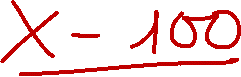 X - 100